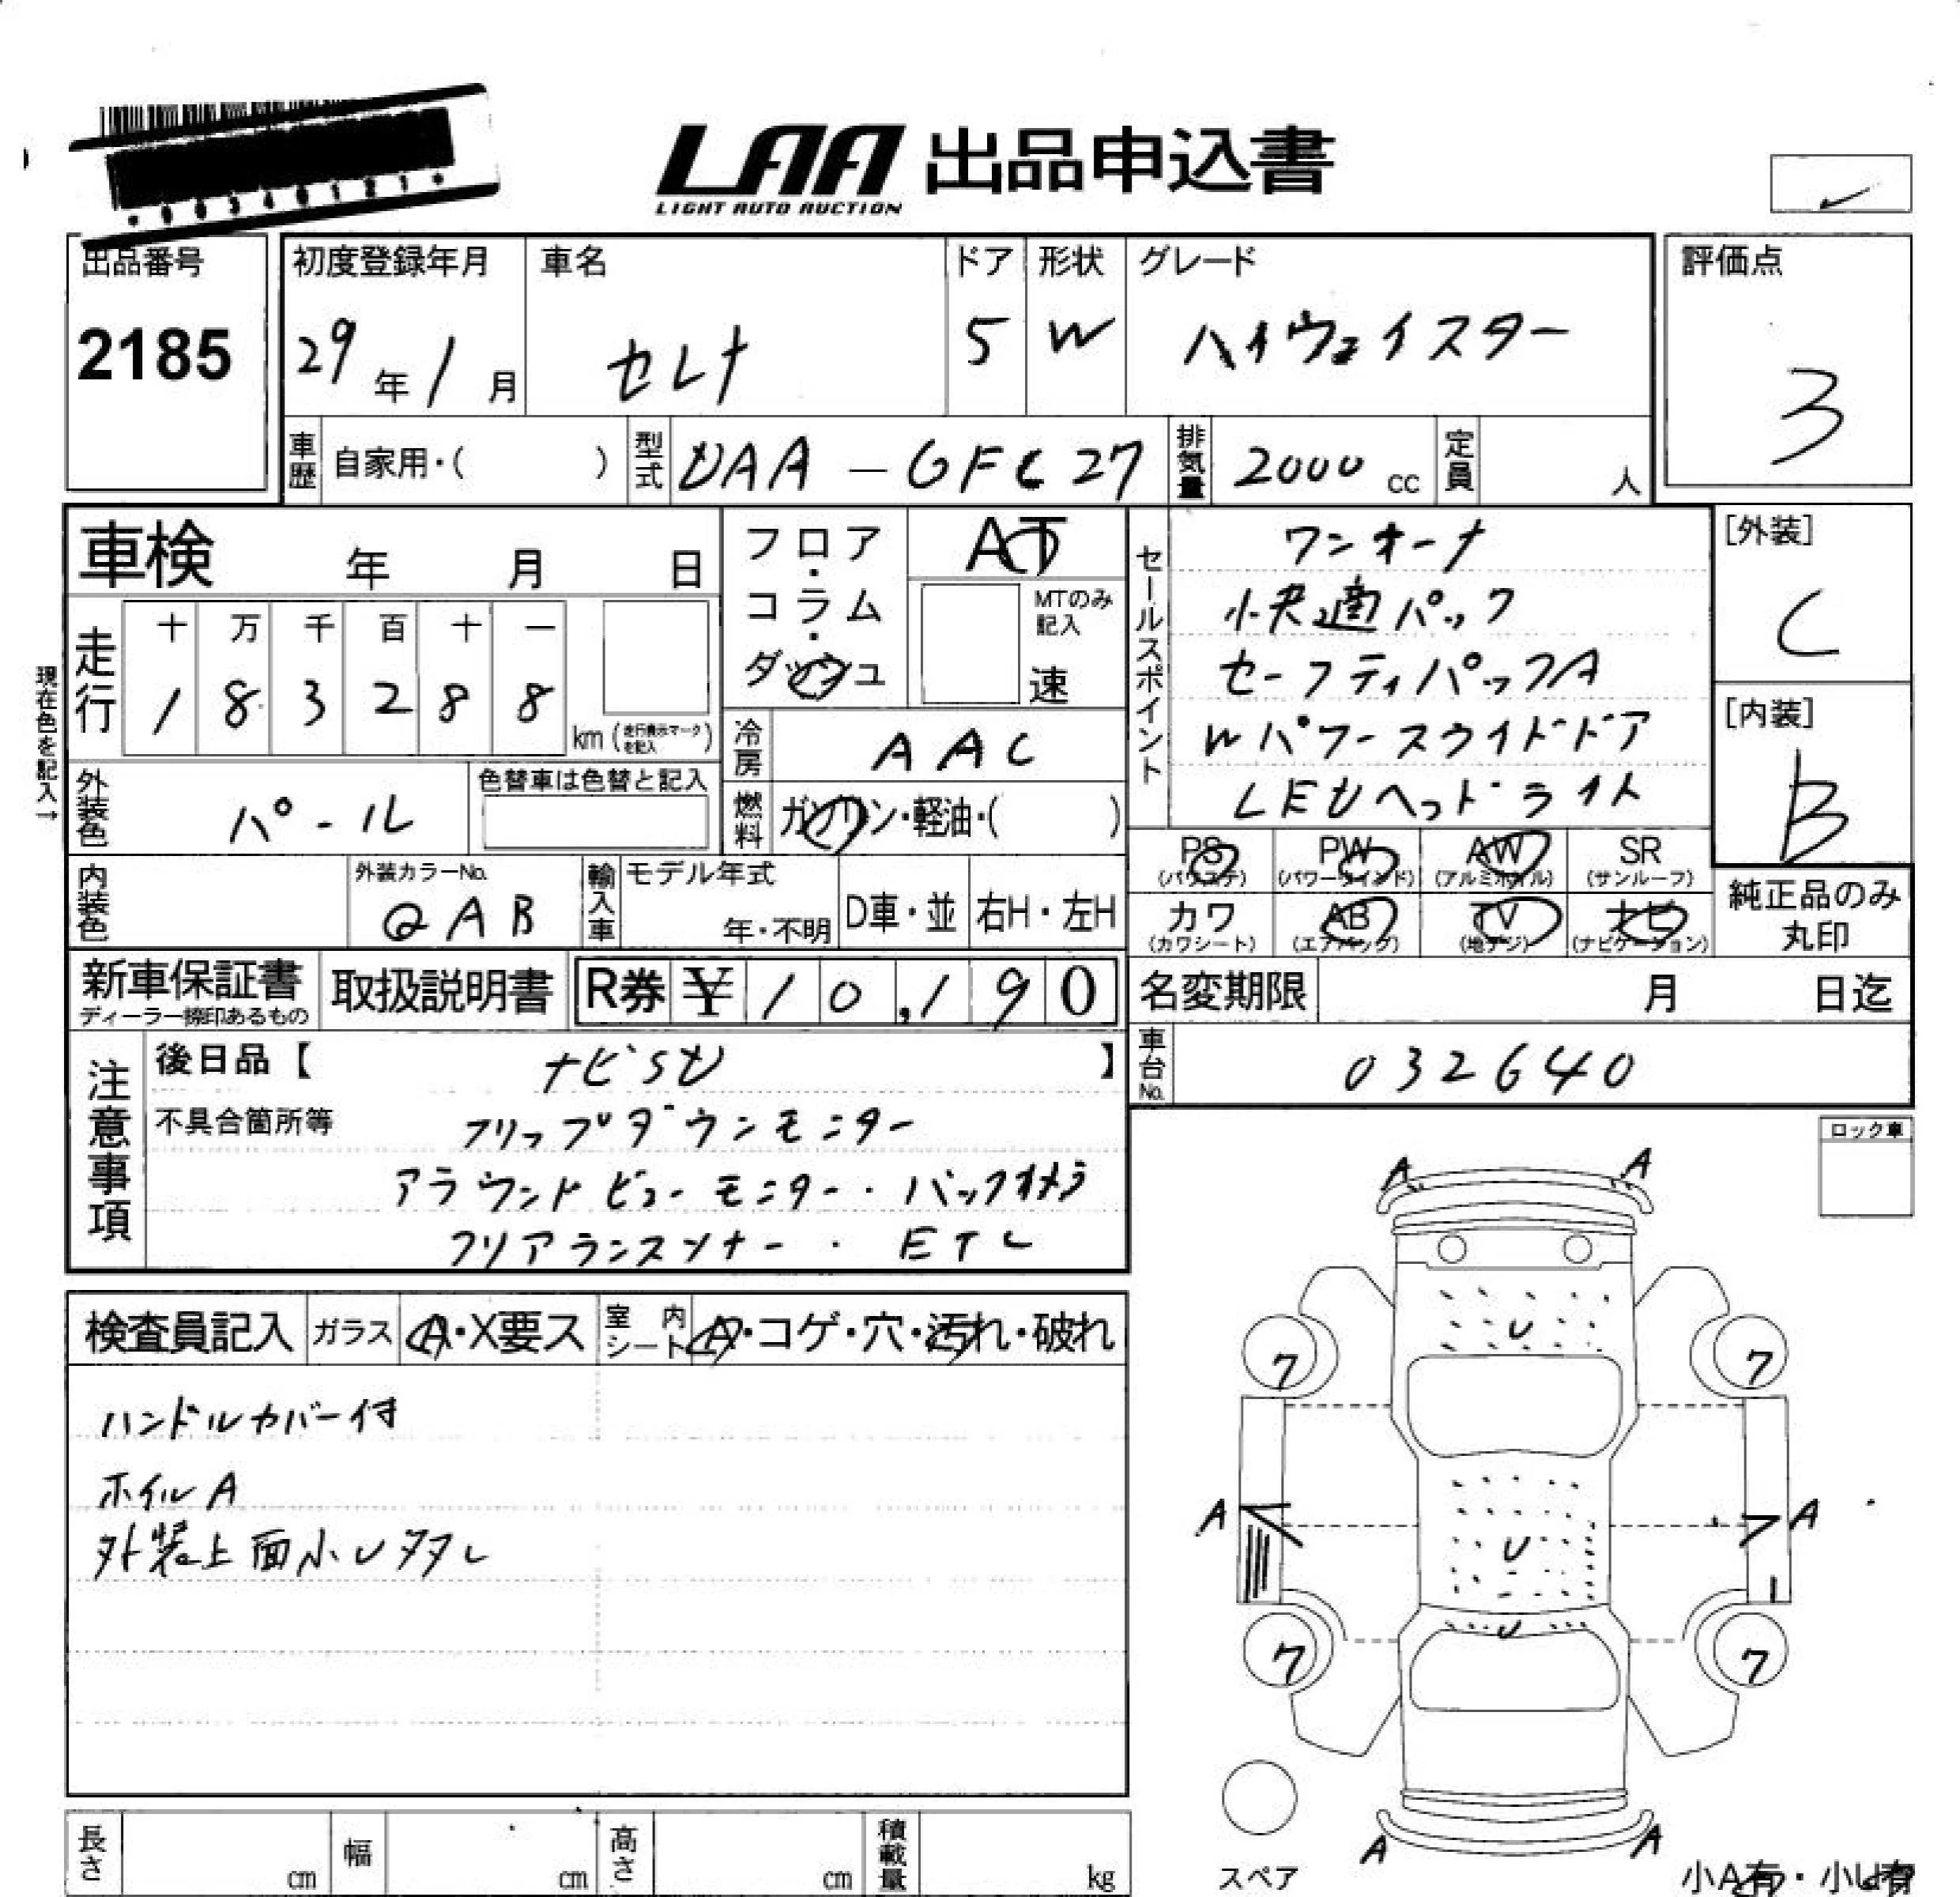 *00340121*
LAA 出品申込書
LIGHT AUTO AUCTION
出品番号 2185
初度登録年月 29年1月
車名 セレナ
ドア 5
形状 W
グレード ハイウェイスター
評価点 3
車歴 自家用・( )
型式 DAA-GFC27
排気量 2000cc
定員 人
車検 年 月 日
フロア・コラム・ダッシュ
AT
MTのみ記入 速
現在色を記入→
走行 十 万 千 百 十 一
1 8 3 2 8 8 km (走行表示マークを記入)
冷房 AAC
外装色 パール
色替車は色替と記入
燃料 ガソリン・軽油・( )
内装色
外装カラーNo. QAB
輸入車 モデル年式 年・不明 D車・並 右H・左H
セールスポイント
ワンオーナ
快適パック
セーフティパックA
Wパワースライドドア
LEDヘッドライト
[外装] C
[内装] B
PS (パワステ) PW (パワーウインド) AW (アルミホイル) SR (サンルーフ)
カワ (カワシート) AB (エアバッグ) TV (地デジ) ナビ (ナビゲーション)
純正品のみ丸印
新車保証書 ディーラー捺印あるもの
取扱説明書
R券 ¥10,190
名変期限 月 日迄
注意事項
後日品【 ナビSD 】
不具合箇所等 フリップダウンモニター
アラウンドビューモニター・バックカメラ
クリアランスソナー・ETC
車台No. 032640
ロック車
検査員記入 ガラス A・X要ス 室内シート A・コゲ・穴・汚れ・破れ
ハンドルカバー付
ホイルA
外装上面小U多々し
A A
U
7 7
A U A
U
7 7
A A
スペア
小A有・小U有
長さ cm 幅 cm 高さ cm 積載量 kg